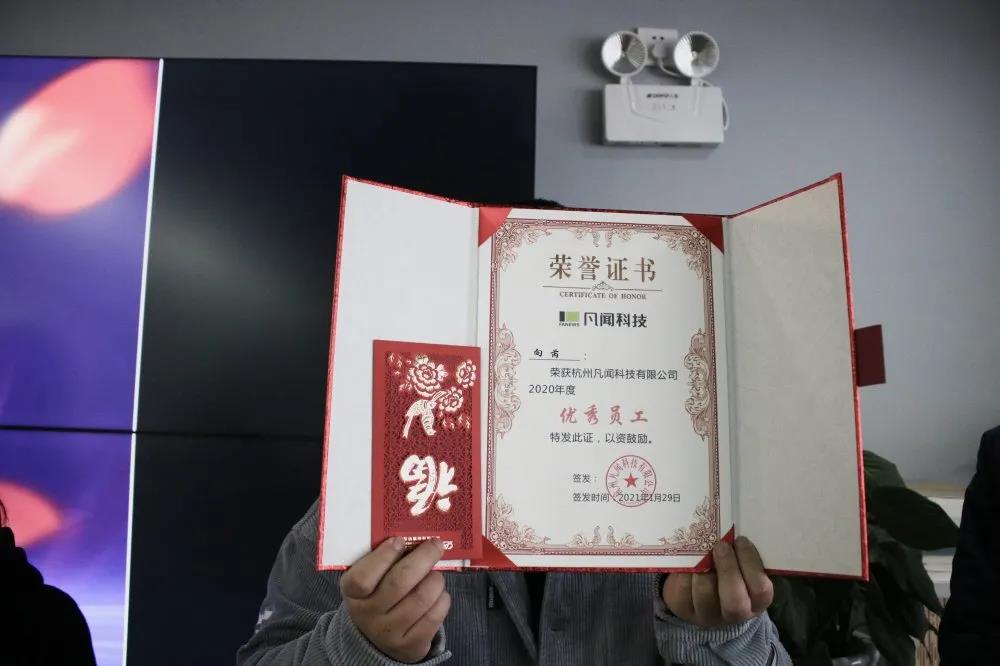 荣誉证书
CERTIFICATE OF HONOR
FANEWS 凡闻科技
向苒：
荣获杭州凡闻科技有限公司
2020年度
优秀员工
特发此证，以资鼓励。
签发：
签发时间：2021年1月29日
杭州凡闻科技有限公司
福